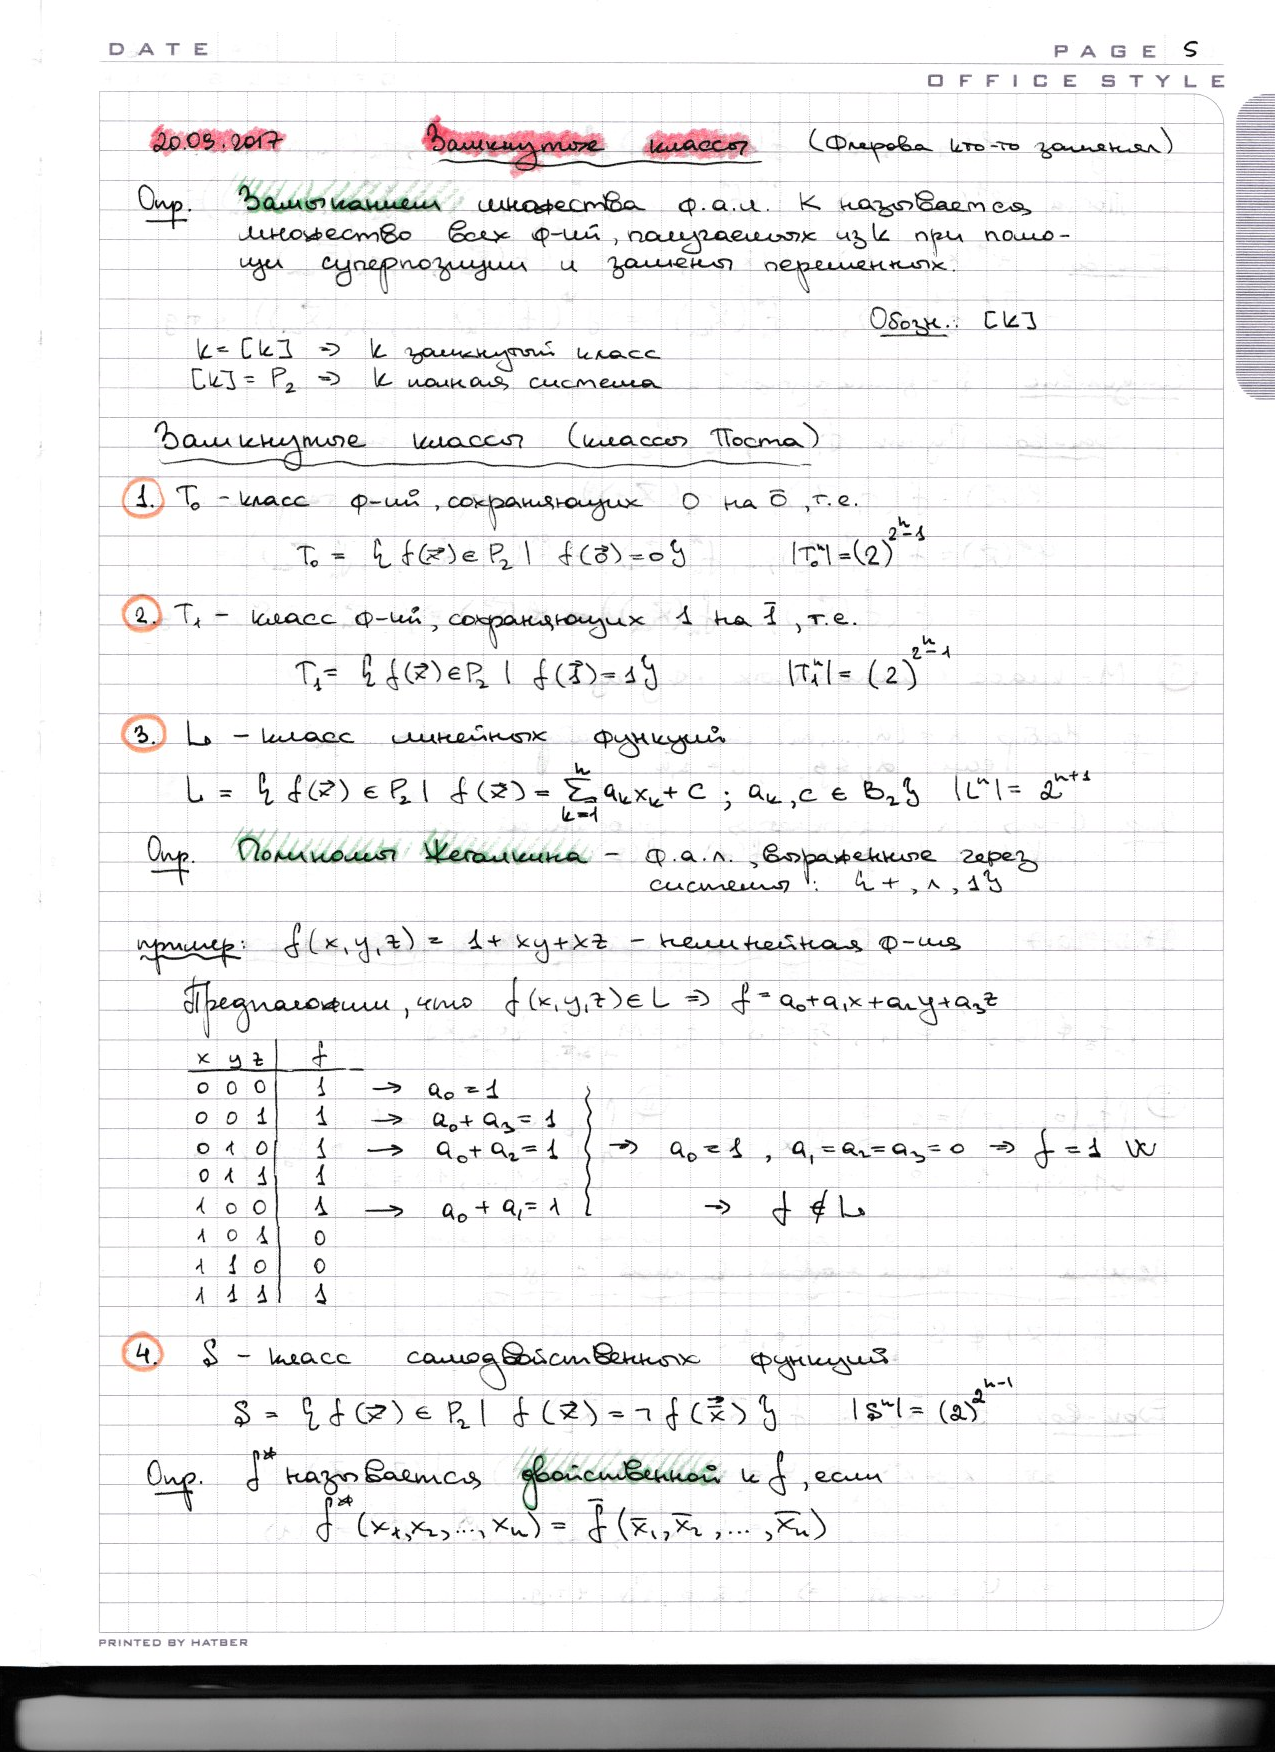 DATE
PAGE 5
OFFICE STYLE
20.03.2017 Замкнутые классы (Флерова кто-то заменял)
Опр. Замыканием множества ф.а.л. K называется
множество всех ф-ий, получаемых из K при помо-
щи суперпозиции и замены переменных.
Обозн.: [K]
K = [K] => K замкнутый класс
[K] = P₂ => K полная система
Замкнутые классы (классы Поста)
1. T₀ - класс ф-ий, сохраняющих 0 на 0̄, т.е.
T₀ = { f(x⃗) ∈ P₂ | f(0⃗) = 0 } |T₀ⁿ| = (2)^(2ⁿ-1)
2. T₁ - класс ф-ий, сохраняющих 1 на 1̄, т.е.
T₁ = { f(x⃗) ∈ P₂ | f(1⃗) = 1 } |T₁ⁿ| = (2)^(2ⁿ-1)
3. L - класс линейных функций
L = { f(x⃗) ∈ P₂ | f(x⃗) = Σₖ₌₁ⁿ aₖxₖ + c ; aₖ, c ∈ B₂ } |Lⁿ| = 2ⁿ⁺¹
Опр. Полиномы Жегалкина - ф.а.л., выраженные через
системы: { +, ∧, 1 }
пример: f(x, y, z) = 1 + xy + xz - нелинейная ф-ия
Предположим, что f(x, y, z) ∈ L => f = a₀ + a₁x + a₂y + a₃z
x y z | f
0 0 0 | 1 → a₀ = 1
0 0 1 | 1 → a₀ + a₃ = 1
0 1 0 | 1 → a₀ + a₂ = 1 } => a₀ = 1, a₁ = a₂ = a₃ = 0 => f = 1 W
0 1 1 | 1
1 0 0 | 1 → a₀ + a₁ = 1 => f ∉ L
1 0 1 | 0
1 1 0 | 0
1 1 1 | 1
4. S - класс самодвойственных функций
S = { f(x⃗) ∈ P₂ | f(x⃗) = ¬ f(x̄⃗) } |Sⁿ| = (2)^(2ⁿ⁻¹)
Опр. f* называется двойственной к f, если
f*(x₁, x₂, ..., xₙ) = f̄(x̄₁, x̄₂, ..., x̄ₙ)
PRINTED BY HATBER